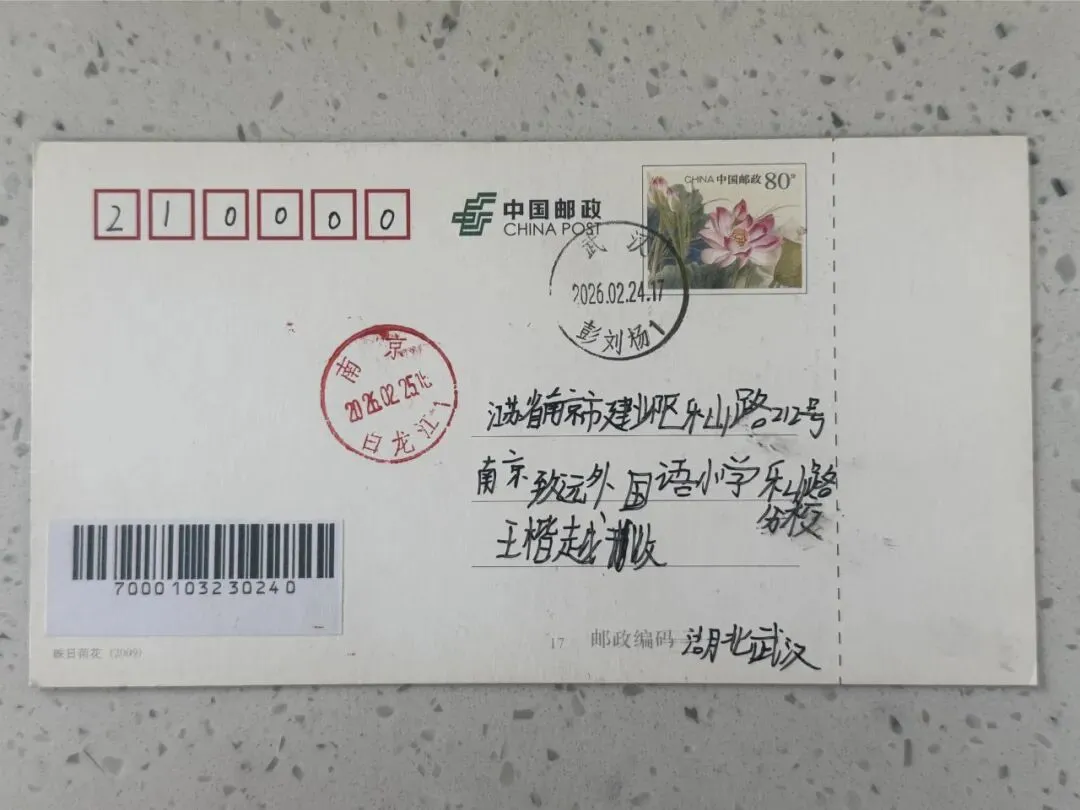 210000
中国邮政
CHINA POST
CHINA 中国邮政 80分
武汉
2026.02.24.17
彭刘杨1
南京
2026.02.25.
白龙江1
江苏省南京市建邺区乐山路212号
南京致远外国语小学乐山路
分校
王楷越 收
7000103230240
映日荷花 (2009)
17 邮政编码 湖北武汉